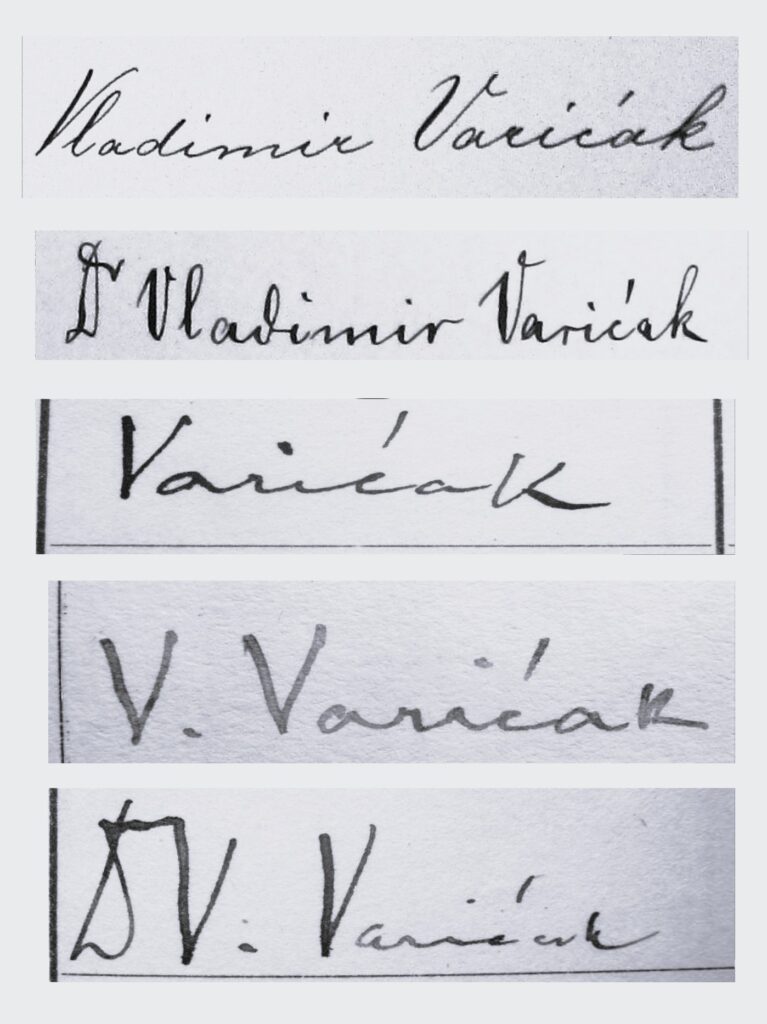 Vladimir Varićak
Dr Vladimir Varićak
Varićak
V. Varićak
D V. Varićak